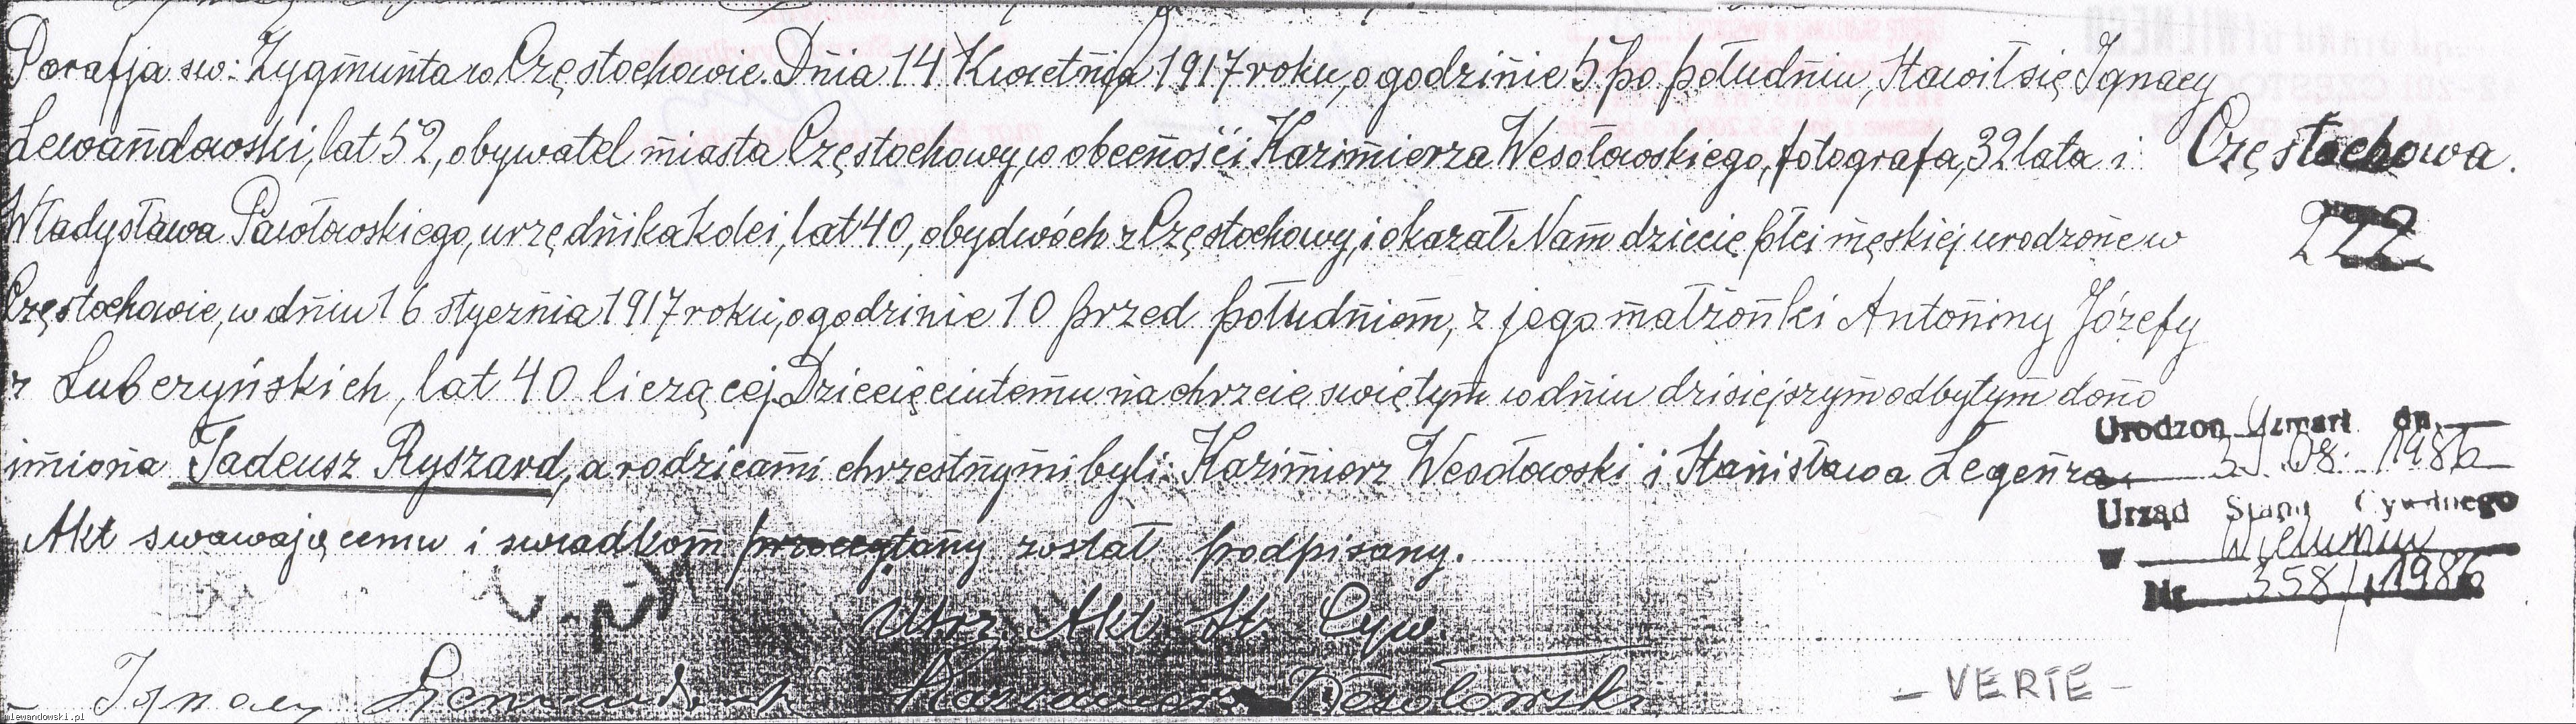 Parafja św: Zygmunta w Częstochowie. Dnia 14 Kwietnia 1917 roku, o godzinie 5 po południu, stawił się Ignacy
Lewandowski, lat 52, obywatel miasta Częstochowy, w obecności Kazimierza Wesołowskiego, fotografa, 32 lata i
Władysława Pawłowskiego, urzędnika kolei, lat 40, obydwóch z Częstochowy, i okazał Nam dziecię płci męskiej urodzone w
Częstochowie, w dniu 16 stycznia 1917 roku, o godzinie 10 przed południem, z jego małżonki Antoniny Józefy
z Luberzyńskich, lat 40 liczącej. Dziecięciu temu na chrzcie świętym w dniu dzisiejszym odbytym dano
imiona Tadeusz Ryszard, a rodzicami chrzestnymi byli: Kazimierz Wesołowski i Stanisława Legenza.
Akt swawającemu i świadkom przeczytany został podpisany.
Utrz. Akt. St. Cyw.
Ignacy Lewandowski Kazimierz Wesołowski
Częstochowa.
222
Urodzon Uzmarł dn.
31.08.1986
Urząd Stanu Cywilnego
w Wieluniu
Nr 358/1986
- VERTE -
mlewandowski.pl